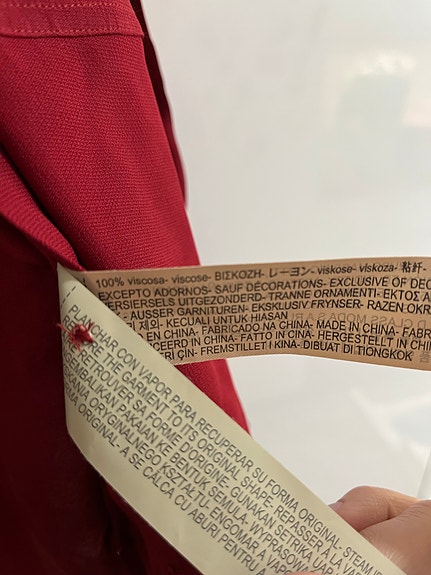 100% viscosa- viscose- ΒΙΣΚΟΖΗ- レーヨン- viskose- viskoza- 粘纤-
EXCEPTO ADORNOS- SAUF DÉCORATIONS- EXCLUSIVE OF DEC
VERSIERSELS UITGEZONDERD- TRANNE ORNAMENTI- ΕΚΤΟΣ Α
- AUSSER GARNITUREN- EKSKLUSIV FRYNSER- RAZEN OKR
제외- KECUALI UNTUK HIASAN
EN CHINA- FABRICADO NA CHINA- MADE IN CHINA- FABR
CEERD IN CHINA- FATTO IN CINA- HERGESTELLT IN CHI
ÇİN- FREMSTILLET I KINA- DIBUAT DI TIONGKOK
PLANCHAR CON VAPOR PARA RECUPERAR SU FORMA ORIGINAL- STEAM
THE GARMENT TO ITS ORIGINAL SHAPE- REPASSER À LA VA
TROUVER SA FORME D'ORIGINE- GUNAKAN SETRIKA UAP
EMBALIKAN PAKAIAN KE BENTUK SEMULA- WYPRASOWA
ORYGINALNEGO KSZTAŁTU- ENGOMAR A VAPO
ORIGINAL- A SE CALCA CU ABURI ENTRU A